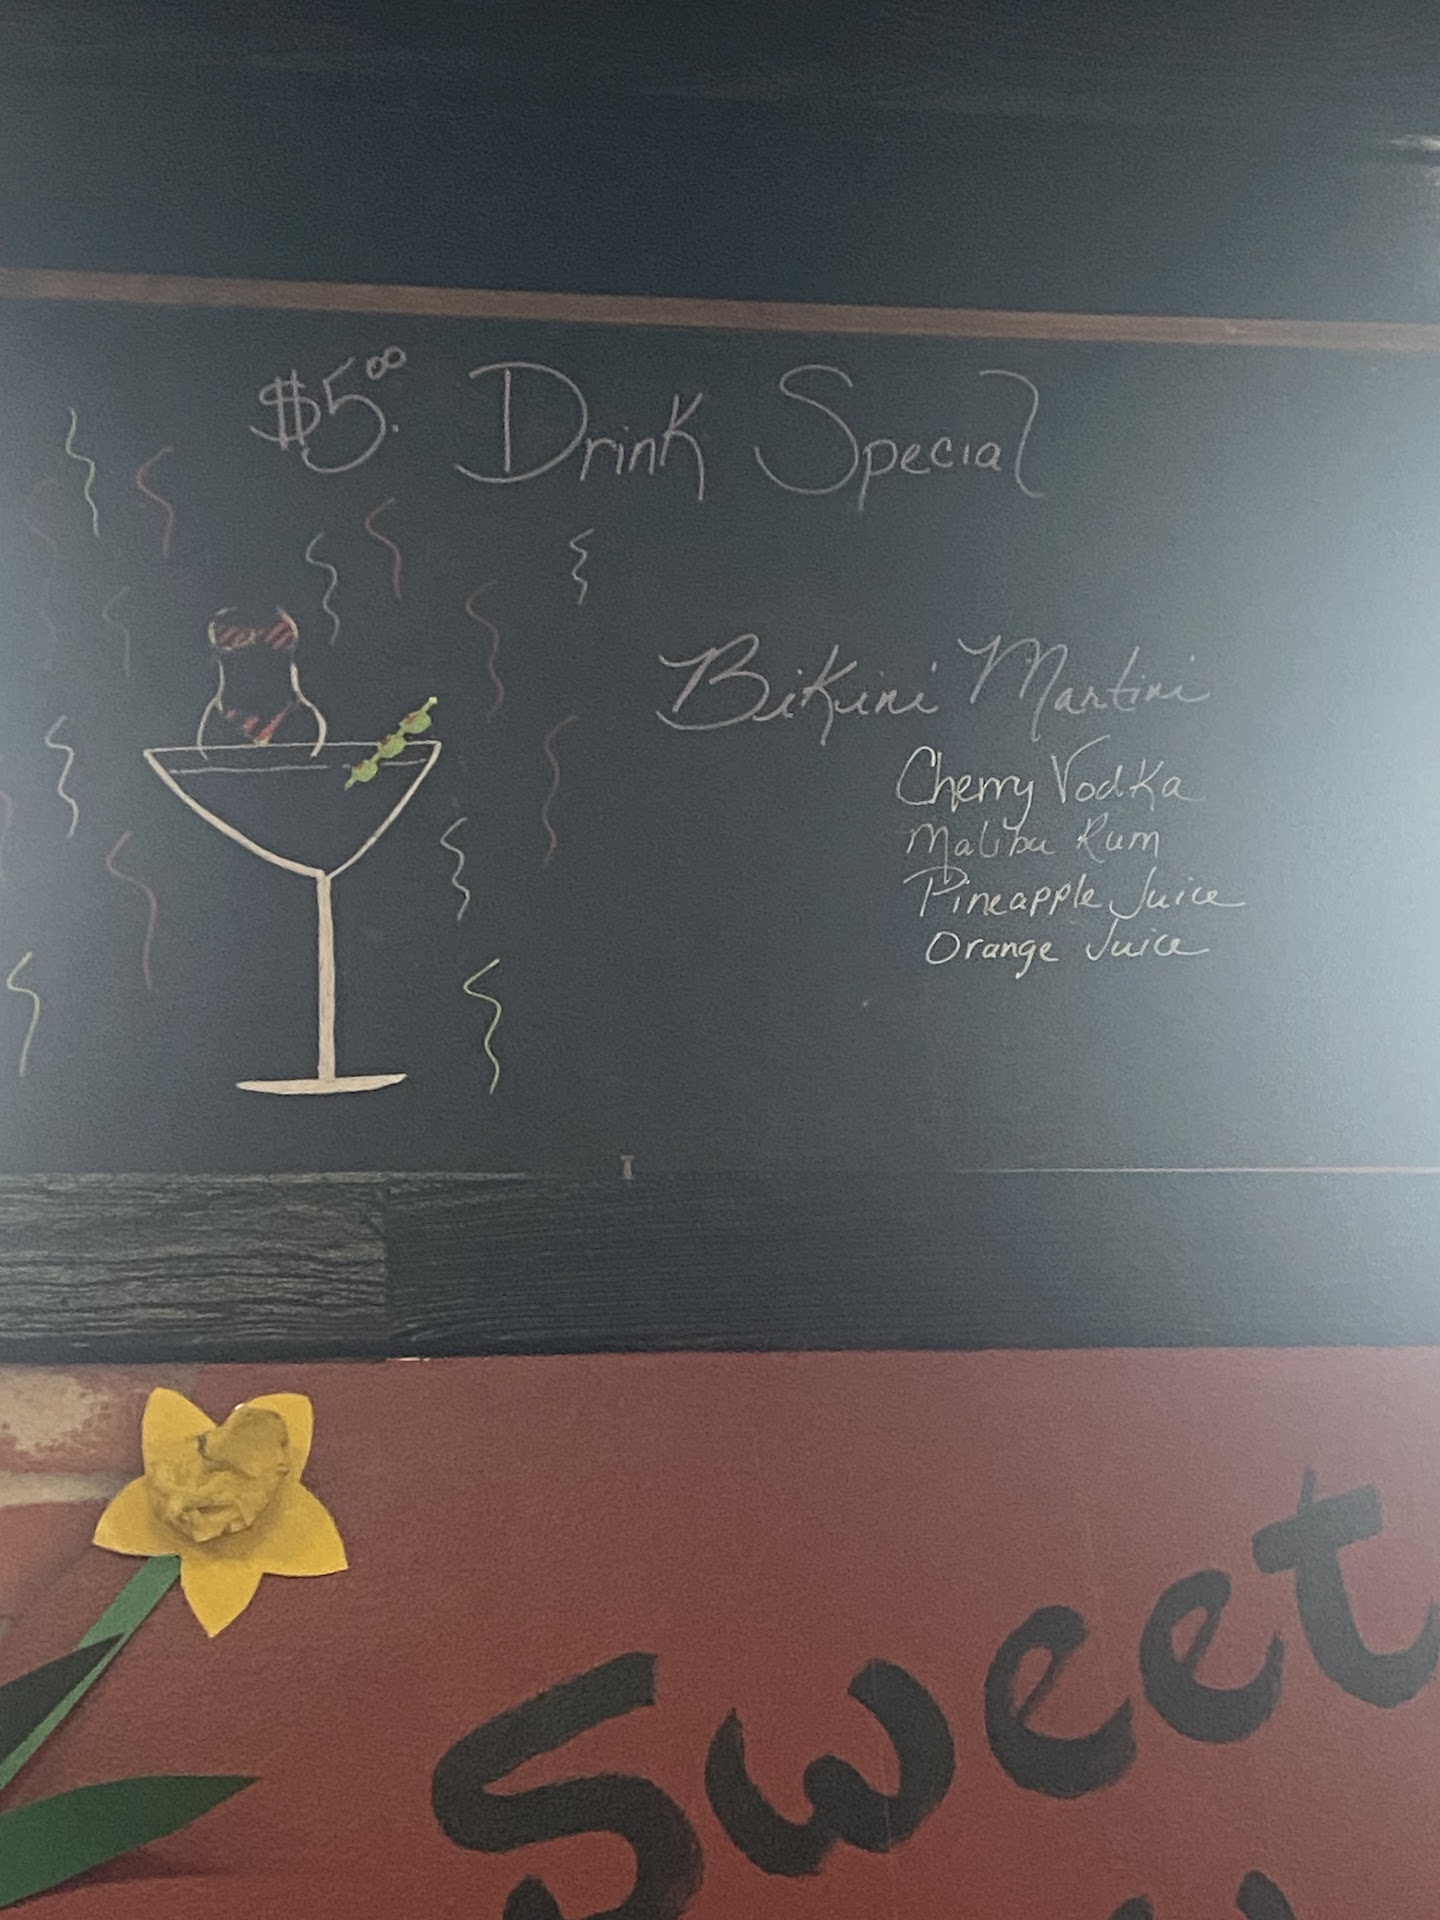 $5.00 Drink Special
Bikini Martini
Cherry Vodka
Malibu Rum
Pineapple Juice
Orange Juice
Sweet